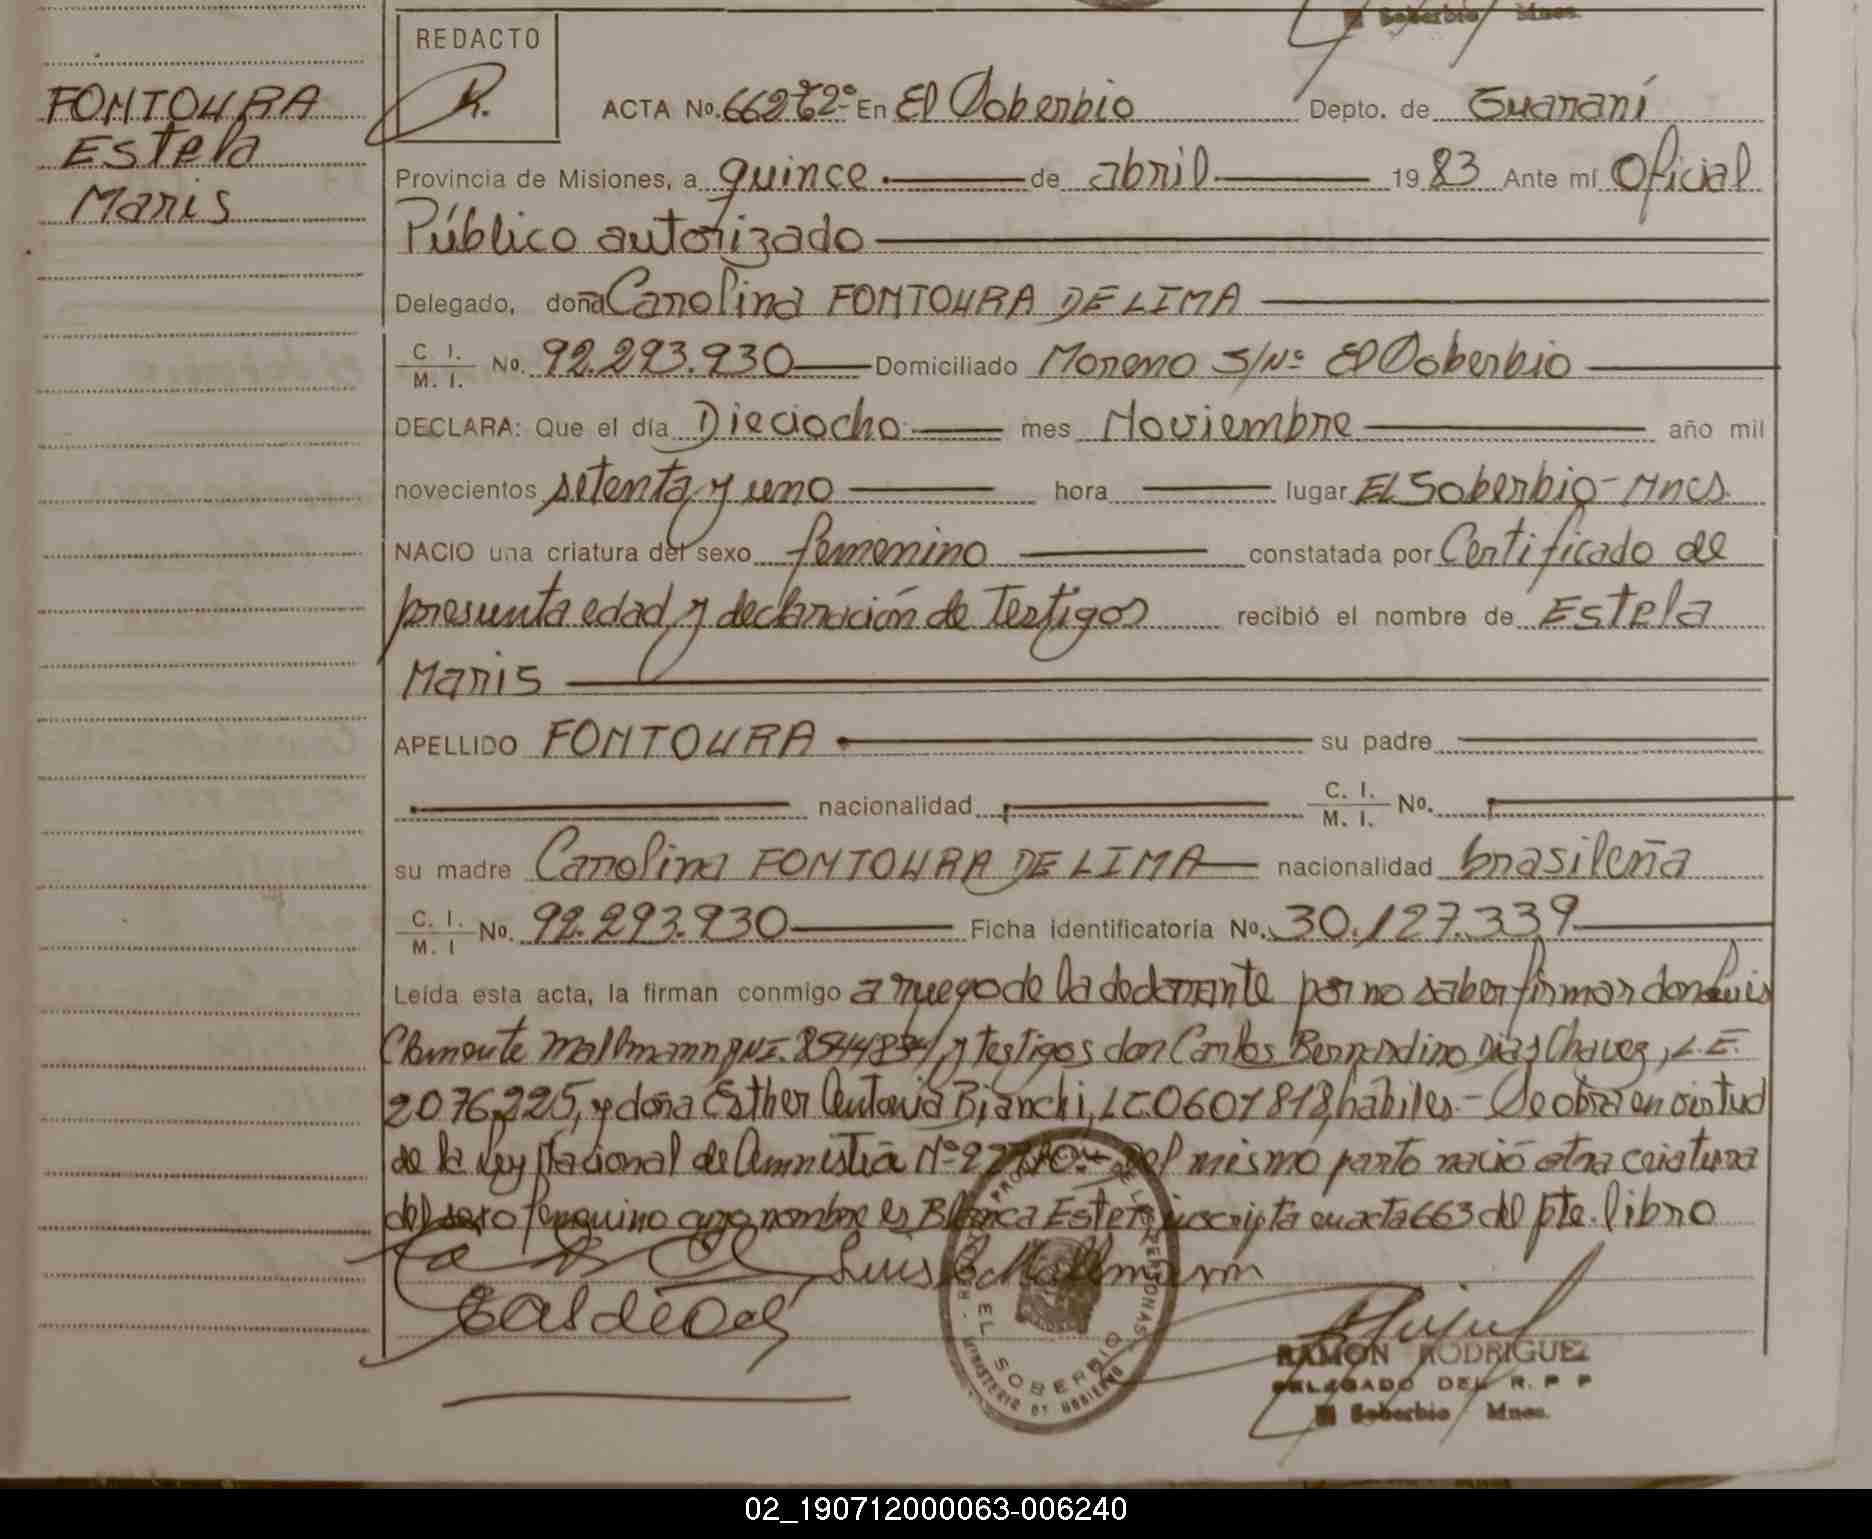 El Soberbio Mnes.
REDACTO
R.
FONTOURA
Estela
Maris
ACTA No. 662 En El Soberbio Depto. de Guaraní
Provincia de Misiones, a quince de abril 1983 Ante mí Oficial
Público autorizado
Delegado, doña Carolina FONTOURA DE LIMA
C. I. M. I. No. 92.293.930 Domiciliado Moreno S/Nº El Soberbio
DECLARA: Que el día Dieciocho mes Noviembre año mil
novecientos setenta y uno hora lugar EL Soberbio - Mnes.
NACIO una criatura del sexo femenino constatada por Certificado de
presunta edad y declaración de Testigos recibió el nombre de Estela
Maris
APELLIDO FONTOURA su padre
nacionalidad C. I. M. I. No.
su madre Carolina FONTOURA DE LIMA nacionalidad brasileña
C. I. M. I No. 92.293.930 Ficha identificatoria No. 30.127.339
Leída esta acta, la firman conmigo a ruego de la declarante por no saber firmar don Luis
Clemente Mallmann DNI. 8544834 y testigos don Carlos Bernardino Diaz Chavez, L.E.
2076225, y doña Esther Antonia Bianchi, L.C. 0601818, habiles.- Se obra en virtud
de la Ley Nacional de Amnistía Nº Del mismo parto nació otra criatura
del sexo femenino cuyo nombre es Blanca Ester inscripta en acta 663 del pte. libro
Luis C. Mallmann
EL SOBERBIO
MINISTERIO DE GOBIERNO
RAMON RODRIGUEZ
DELEGADO DEL R. P P
El Soberbio Mnes.
02_190712000063-006240